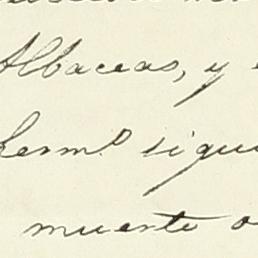 Albaceas, y
herm.º sigui
muerte o